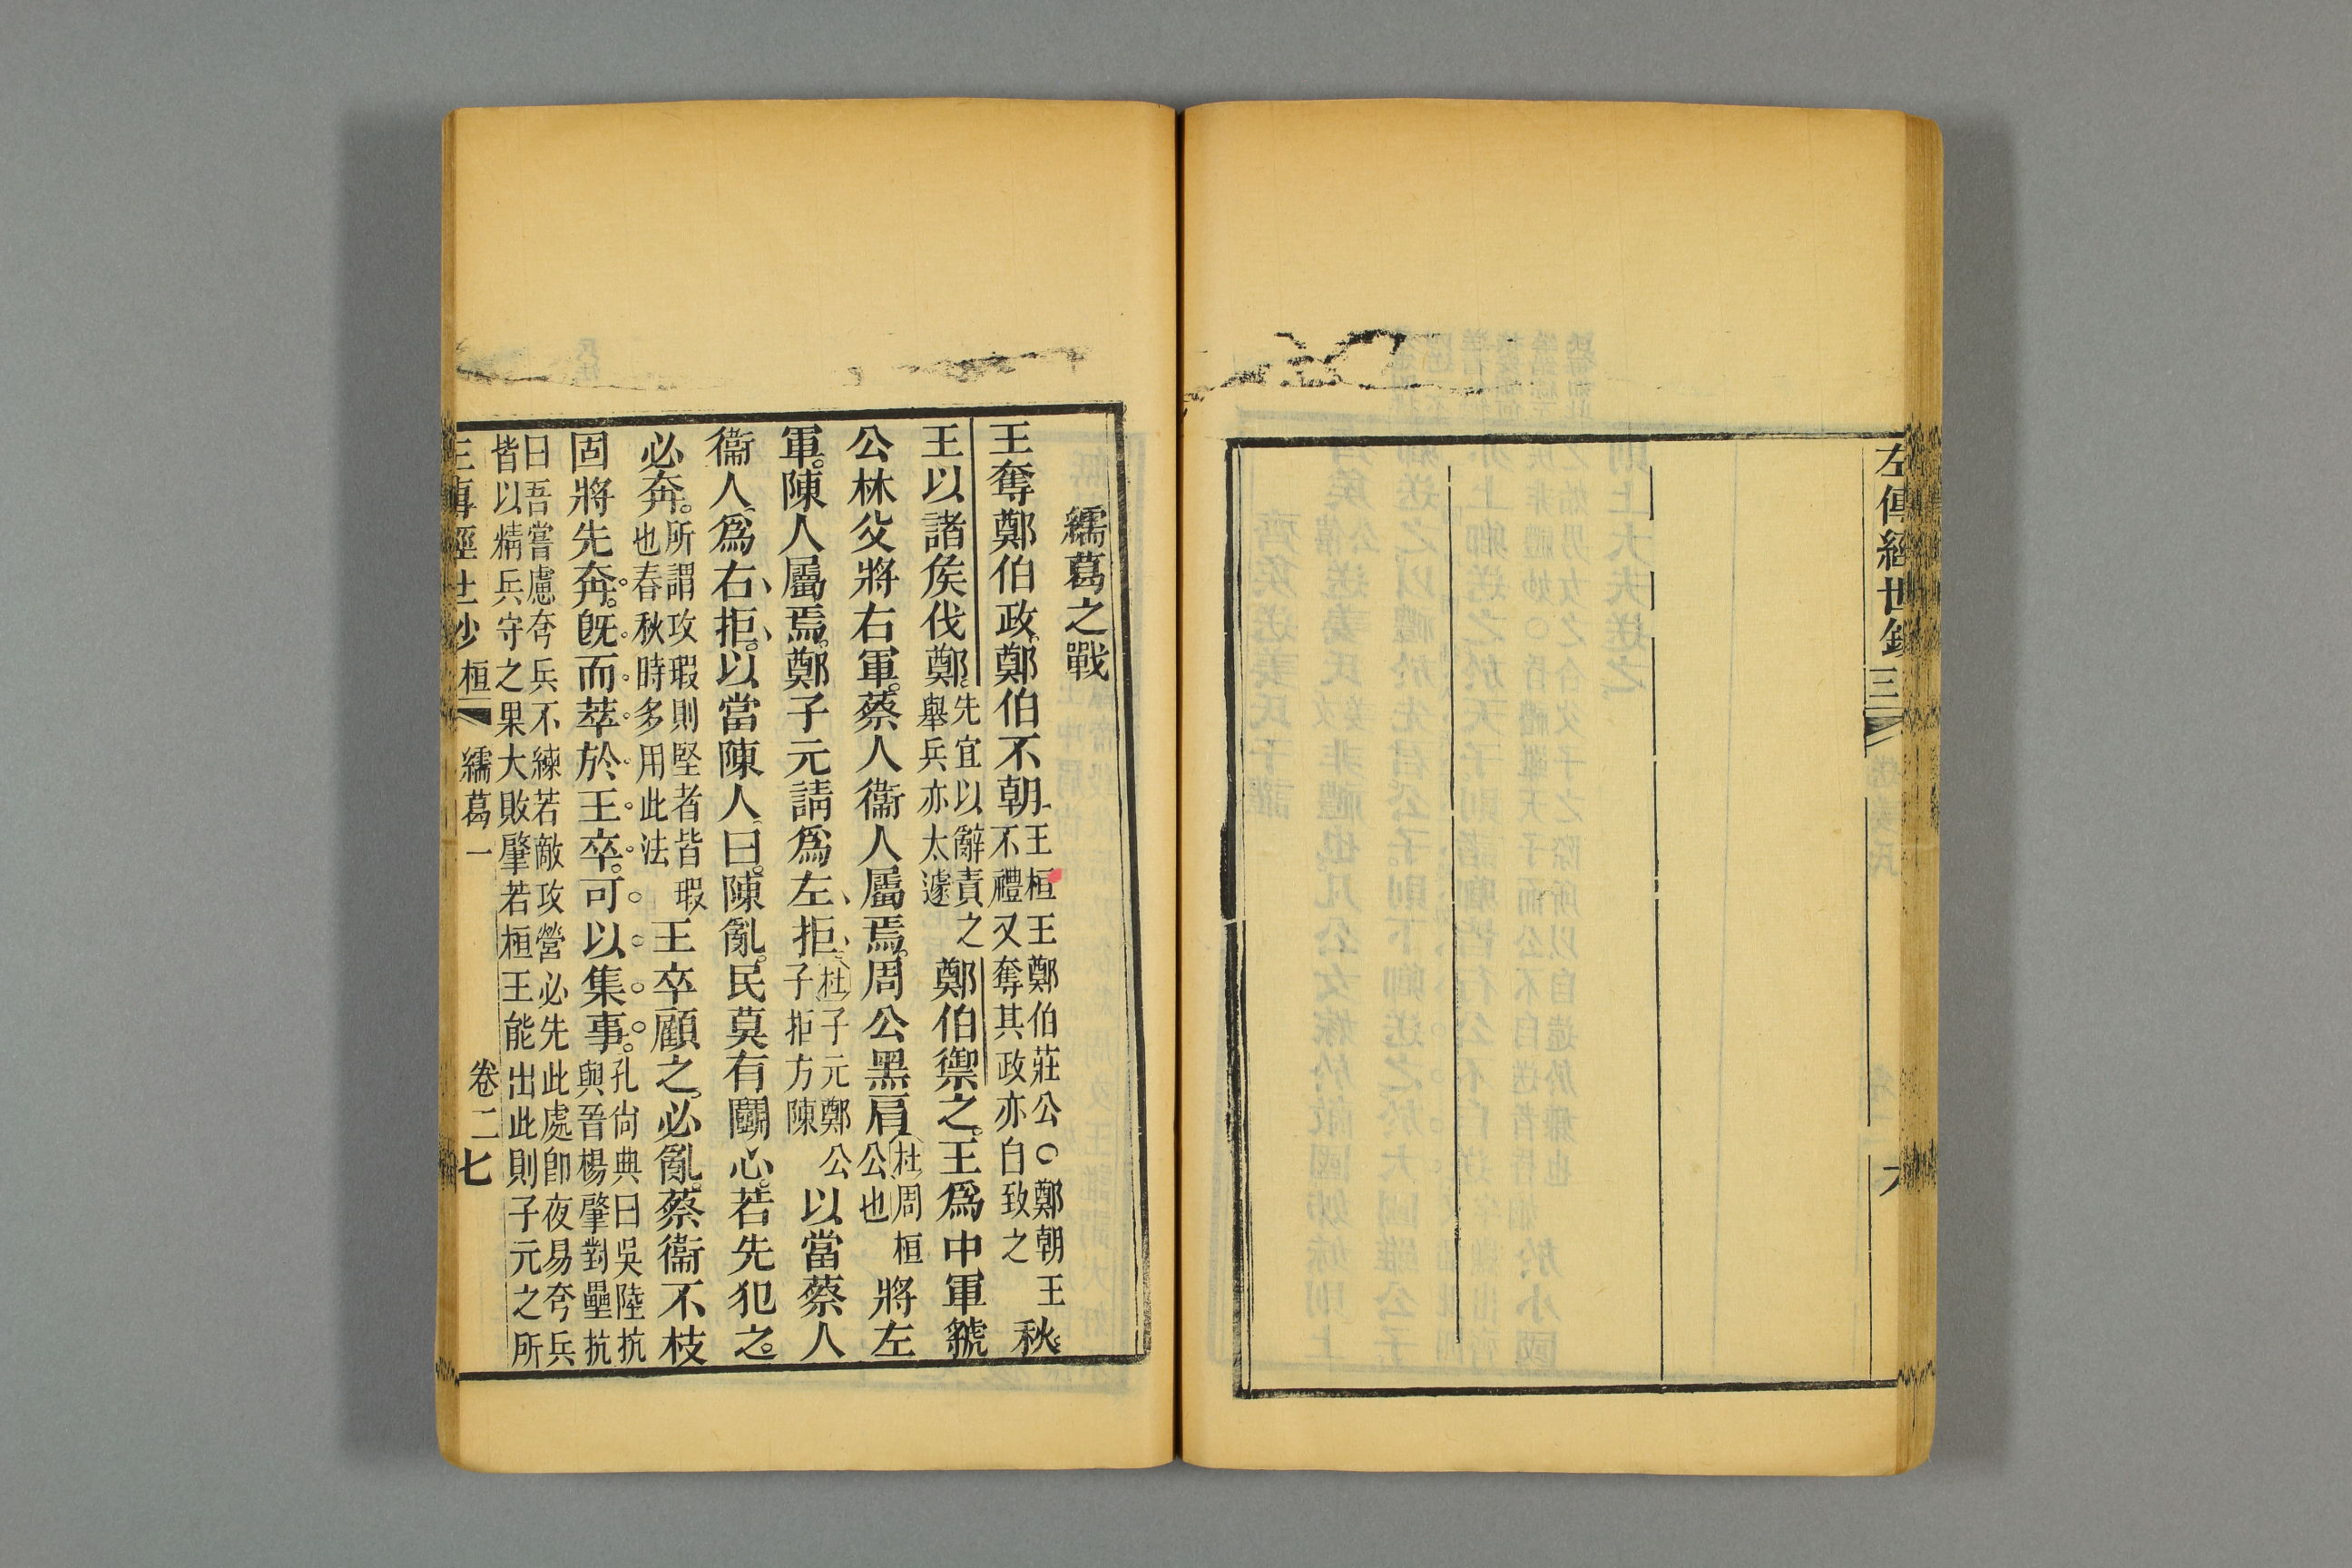 左傳經世鈔
繻葛之戰
王奪鄭伯政鄭伯不朝王桓王鄭伯莊公○鄭朝王不禮又奪其政亦白致之秋
王以諸矦伐鄭先宜以辭責之舉兵亦太遽鄭伯禦之王爲中軍虢
公林父將右軍蔡人衞人屬焉周公黑肩杜周桓公也將左
軍陳人屬焉鄭子元請爲左拒杜子元鄭公子拒方陳以當蔡人
衞人爲右拒以當陳人曰陳亂民莫有鬬心若先犯之
必奔所謂攻瑕則堅者皆瑕也春秋時多用此法王卒顧之必亂蔡衞不枝
固將先奔旣而萃於王卒可以集事孔尙典曰吳陸抗與晉楊肇對壘抗
曰吾嘗慮夸兵不練若敵攻營必先此處卽夜易夸兵皆以精兵守之果大敗肇若桓王能出此則子元之所
桓 繻葛一 卷二 七